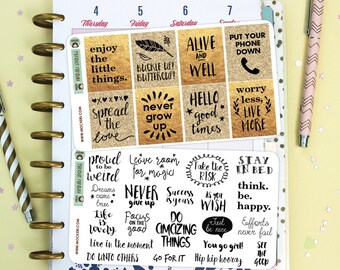 4 5 6 7
Thursday Friday Saturday Sunday
enjoy
the
little
things.
BUCKLE UP
BUTTERCUP
ALIVE
AND
WELL
PUT YOUR
PHONE
DOWN
Spread
the
love
never
grow
up
HELLO
good
times
worry
less,
LIVE
MORE
proud
to be
weird
Leave room
for
magic!
Take the
RISK
STAY
IN BED
Dreams
come
true
NEVER
give up
Success
is yours
AS YOU
WISH
think.
be.
happy.
Life
is
lovely
Focus
ON THE
good
DO
AMAZING
THINGS
Just
be nice
Efforts
never
fail
Live in the moment
You go girl!
SEE
THE
GOOD
DO UNTO OTHERS
GO FOR IT
Hip hip hooray